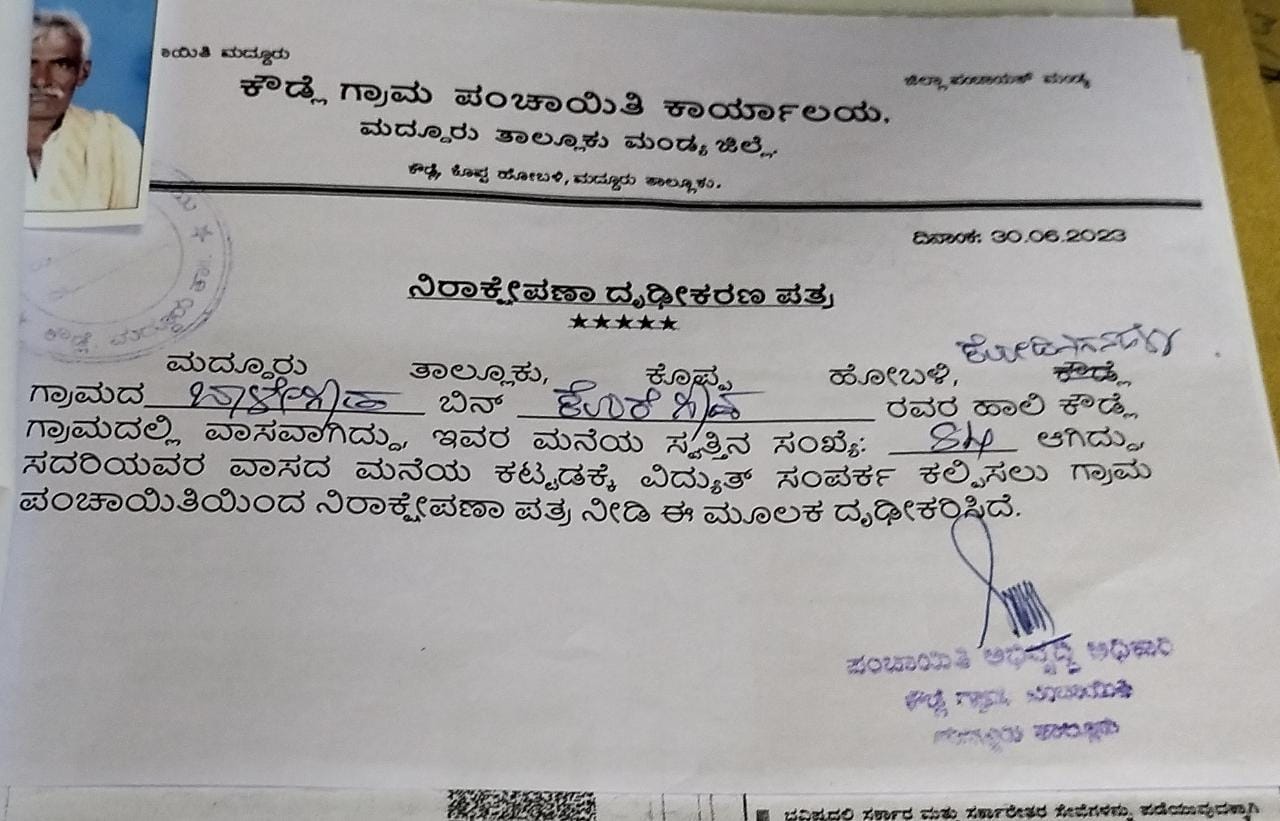 ಾಯಿತಿ ಮದ್ದೂರು
ಜಿಲ್ಲಾ ಪಂಚಾಯತ್ ಮಂಡ್ಯ
ಕೌಡ್ಲೆ ಗ್ರಾಮ ಪಂಚಾಯಿತಿ ಕಾರ್ಯಾಲಯ,
ಮದ್ದೂರು ತಾಲ್ಲೂಕು ಮಂಡ್ಯ ಜಿಲ್ಲೆ.
ಕೌಡ್ಲೆ, ಕೊಪ್ಪ ಹೋಬಳಿ, ಮದ್ದೂರು ತಾಲ್ಲೂಕು.
ದಿನಾಂಕ: 30.06.2023
ನಿರಾಕ್ಷೇಪಣಾ ದೃಢೀಕರಣ ಪತ್ರ
★★★★★
ಮದ್ದೂರು ತಾಲ್ಲೂಕು, ಕೊಪ್ಪ ಹೋಬಳಿ, ಕೌಡ್ಲೆ
ಗ್ರಾಮದ ಬಿನ್ ರವರ ಹಾಲಿ ಕೌಡ್ಲೆ
ಗ್ರಾಮದಲ್ಲಿ ವಾಸವಾಗಿದ್ದು, ಇವರ ಮನೆಯ ಸ್ವತ್ತಿನ ಸಂಖ್ಯೆ: 84 ಆಗಿದ್ದು,
ಸದರಿಯವರ ವಾಸದ ಮನೆಯ ಕಟ್ಟಡಕ್ಕೆ ವಿದ್ಯುತ್ ಸಂಪರ್ಕ ಕಲ್ಪಿಸಲು ಗ್ರಾಮ
ಪಂಚಾಯಿತಿಯಿಂದ ನಿರಾಕ್ಷೇಪಣಾ ಪತ್ರ ನೀಡಿ ಈ ಮೂಲಕ ದೃಢೀಕರಿಸಿದೆ.
ಪಂಚಾಯಿತಿ ಅಭಿವೃದ್ಧಿ ಅಧಿಕಾರಿ
ಕೌಡ್ಲೆ ಗ್ರಾಮ ಪಂಚಾಯಿತಿ
ಮದ್ದೂರು ತಾಲ್ಲೂಕು
ಭವಿಷ್ಯದಲ್ಲಿ ಸರ್ಕಾರಿ ಮತ್ತು ಸರ್ಕಾರೇತರ ಸೇವೆಗಳನ್ನು ಪಡೆಯುವುದಕ್ಕಾಗಿ